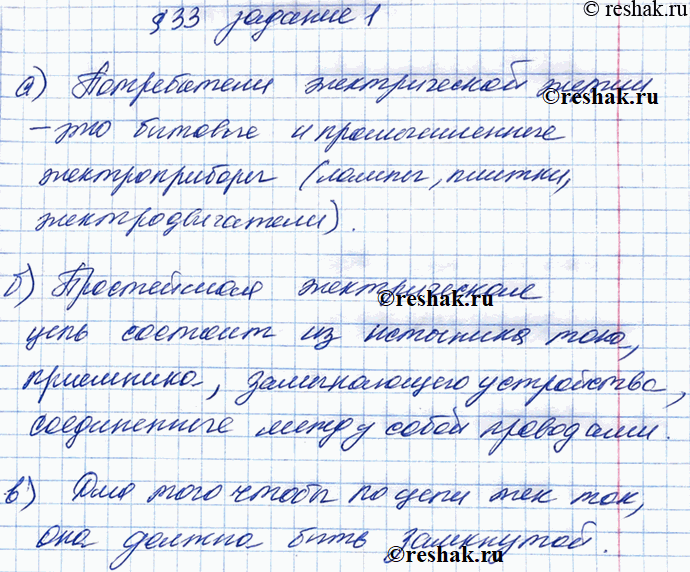 ©reshak.ru
§33 задание 1
а) Потребители электрической энергии
©reshak.ru
– это бытовые и промышленные
электроприборы (лампы, плитки,
электродвигатели).
б) Простейшая электрическая
©reshak.ru
цепь состоит из источника тока,
приемника, замыкающего устройства,
соединенные между собой проводами.
в) Для того чтобы по цепи тек ток,
она должна быть замкнутой.
©reshak.ru